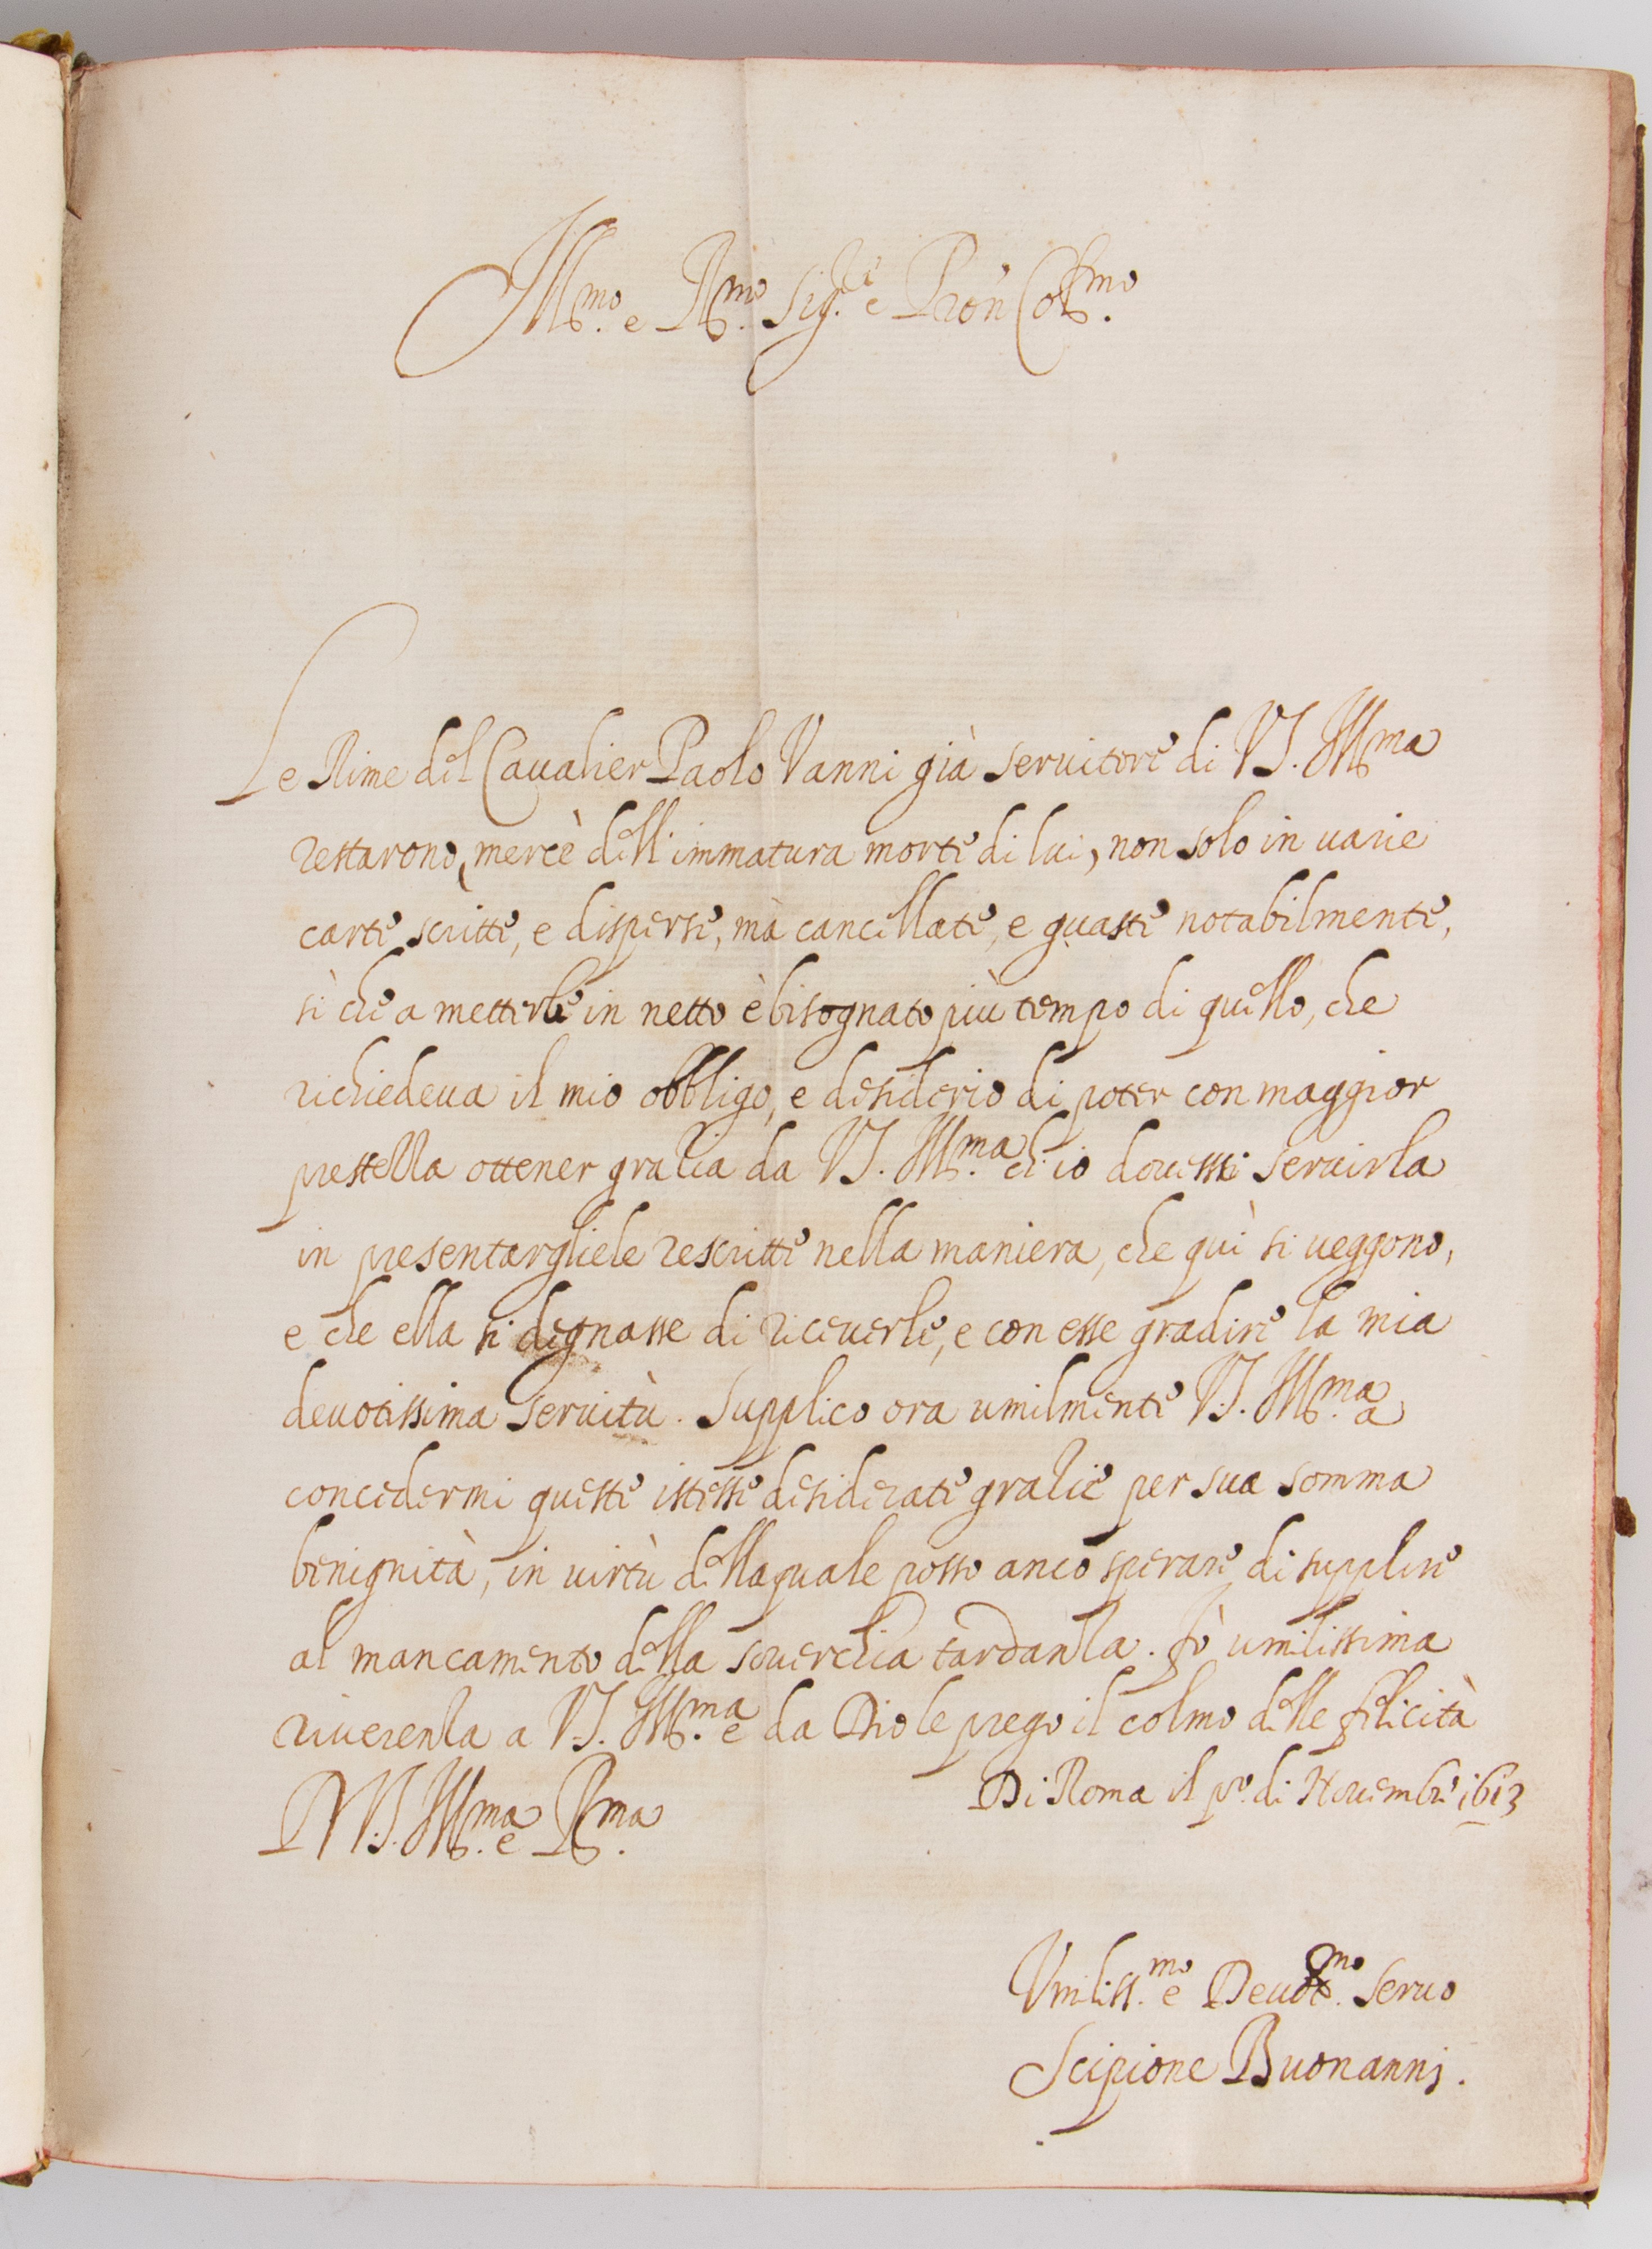 Ill.mo e R.mo Sig.re e Pron Col.mo
Le Rime del Caualier Paolo Vanni già seruitore di V.S. Ill.ma
restarono, mercè dell'immatura morte di lui, non solo in uarie
carte scritte, e disperse, mà cancellate, e guaste notabilmente,
sì che a metterle in netto è bisognato più tempo di quello, che
richiedeua il mio obbligo, e desiderio di poter con maggior
prestezza ottener grazia da V.S. Ill.ma ch'io douessi seruirla
in presentargliele rescritte nella maniera, che quì si ueggono,
e che ella si degnasse di riceuerle, e con esse gradire la mia
deuotissima seruitù. Supplico ora umilmente V.S. Ill.ma a
concedermi queste istesse desiderate grazie per sua somma
benignità, in uirtù della quale posso anco sperare di supplire
al mancamento della souerchia tardanza. Fò umilissima
riuerenza a V.S. Ill.ma e da Dio le prego il colmo delle felicità
Di Roma il p.o di Nouembre 1613
D V.S. Ill.ma e R.ma
Vmiliss.mo e Deuot.mo Seruo
Scipione Buonanni.